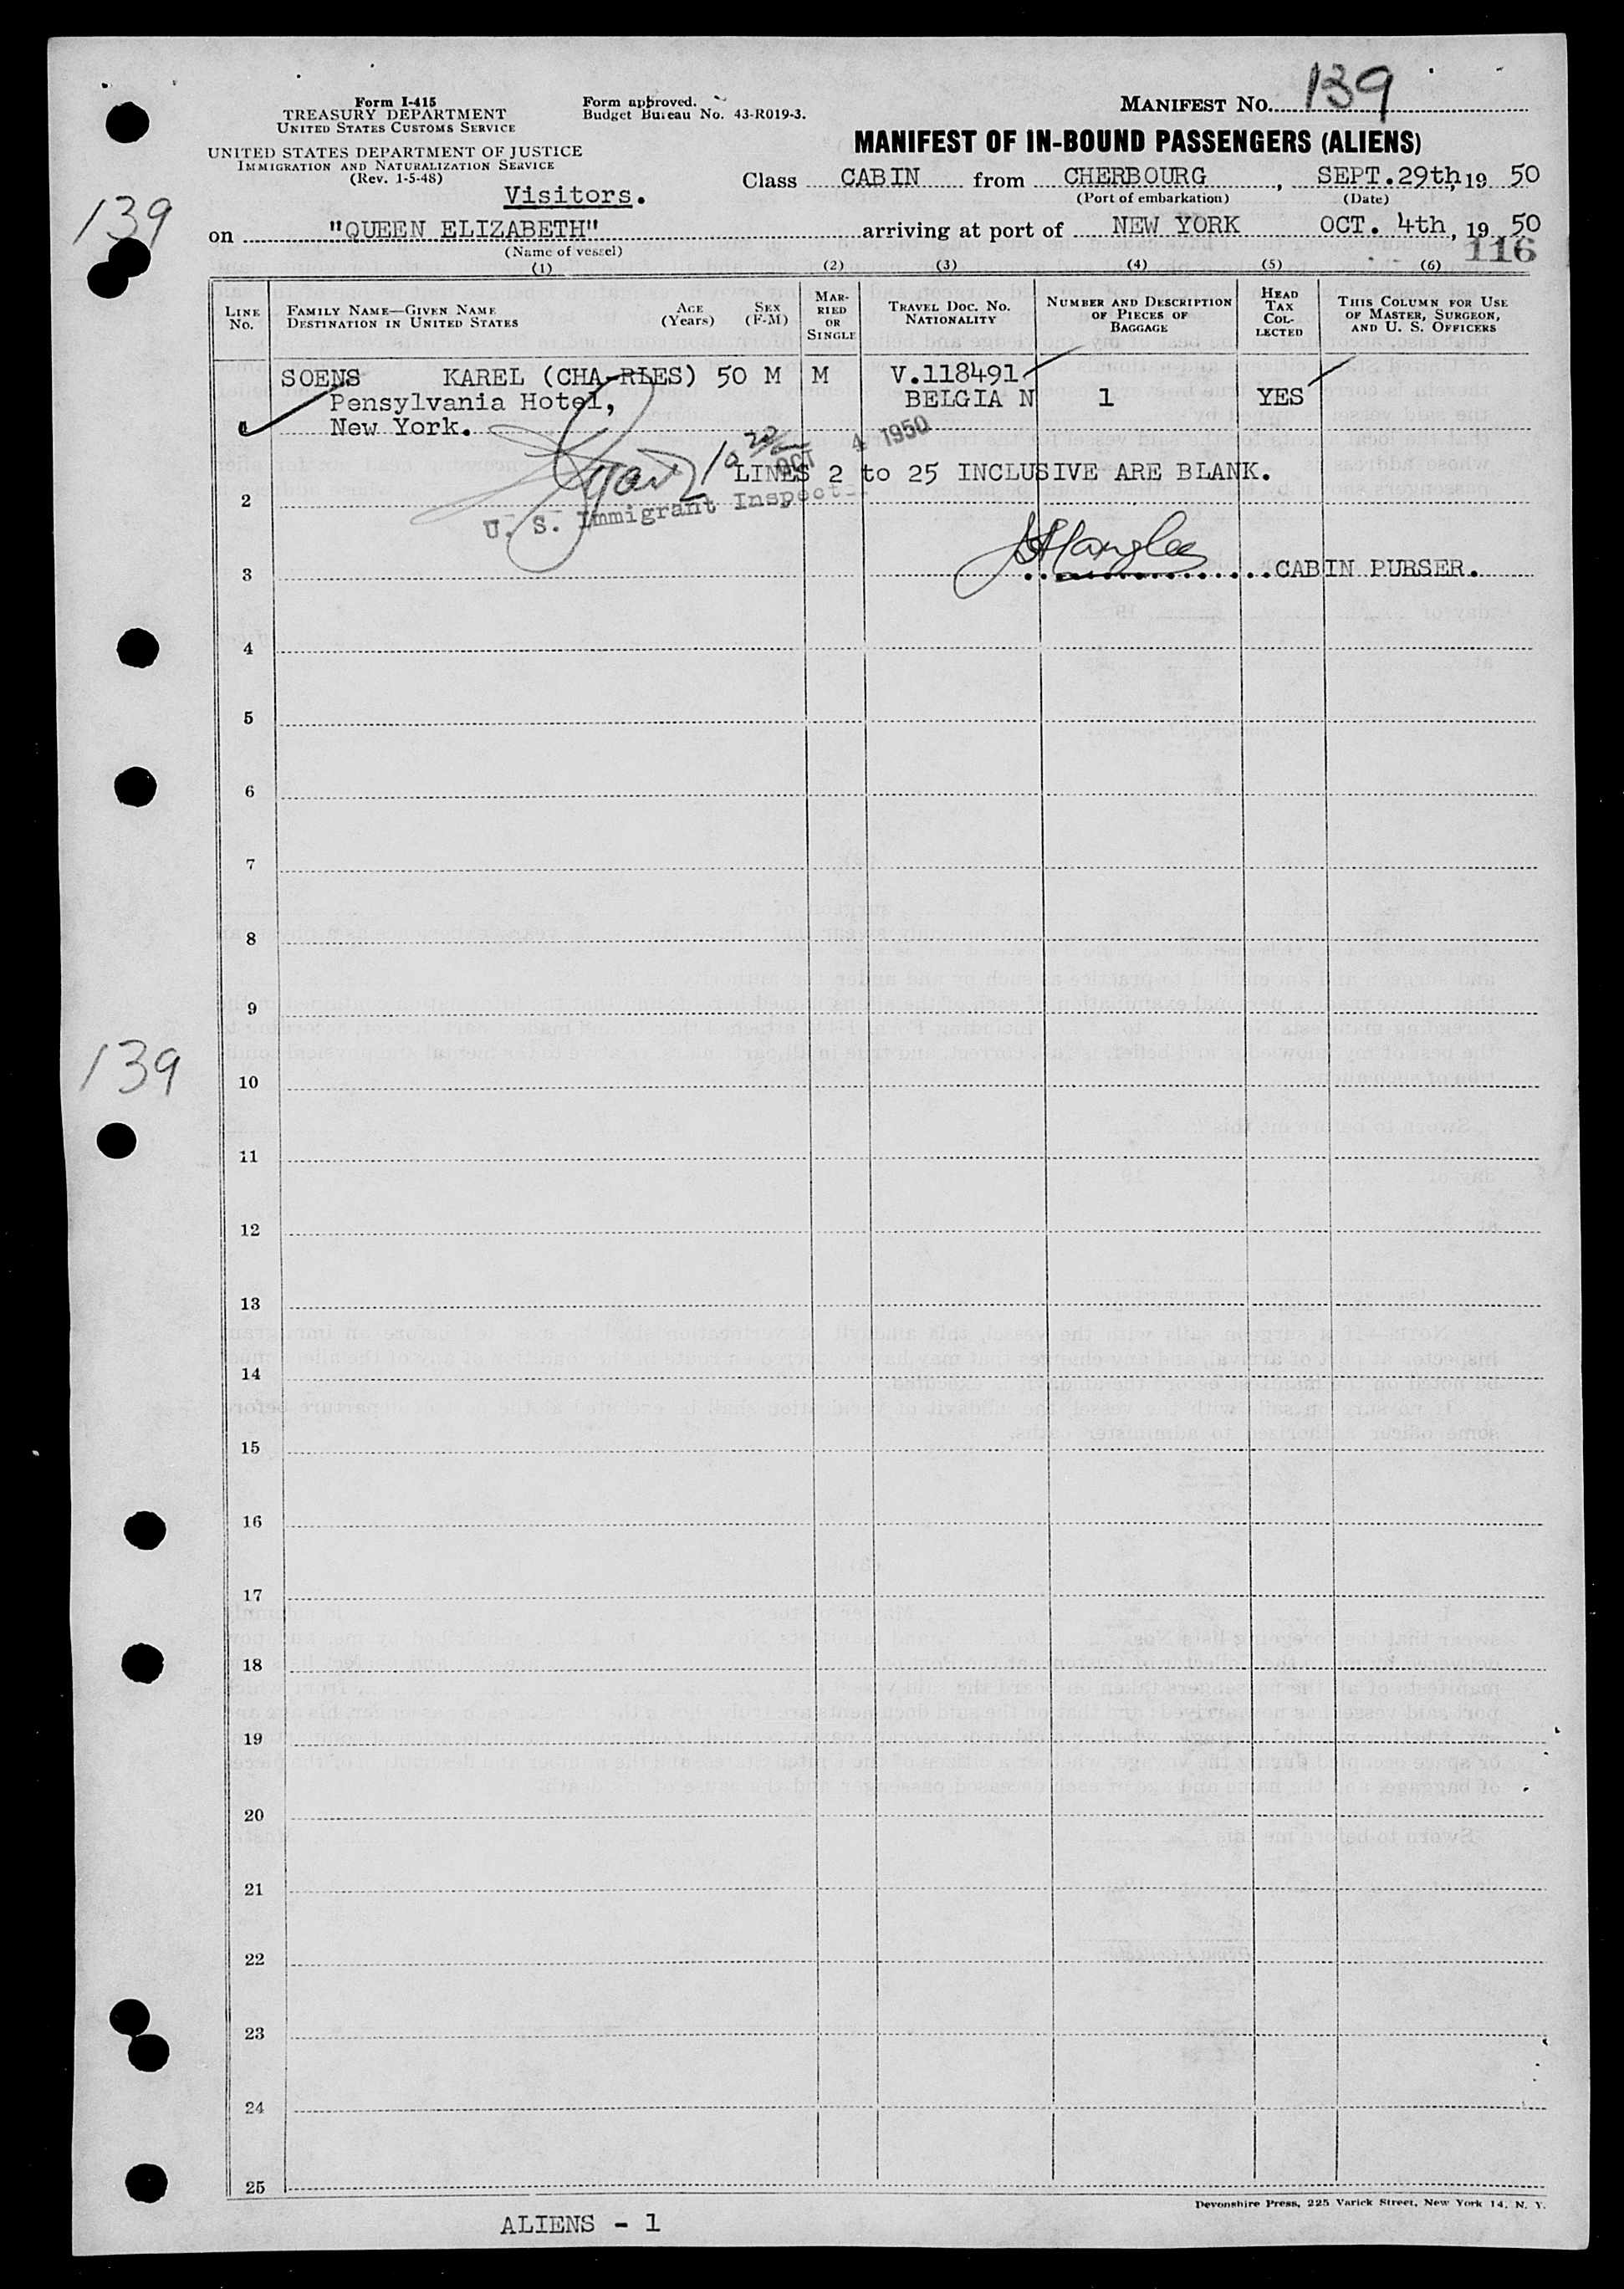 Form I-415
TREASURY DEPARTMENT
UNITED STATES CUSTOMS SERVICE
UNITED STATES DEPARTMENT OF JUSTICE
IMMIGRATION AND NATURALIZATION SERVICE
(Rev. 1-5-48)
Form approved.
Budget Bureau No. 43-R019-3.
MANIFEST NO. 139
MANIFEST OF IN-BOUND PASSENGERS (ALIENS)
Class CABIN from CHERBOURG, SEPT.29th, 19 50
(Port of embarkation) (Date)
139
Visitors.
on "QUEEN ELIZABETH" arriving at port of NEW YORK OCT. 4th, 19 50
(Name of vessel)
116
(1) (2) (3) (4) (5) (6)
LINE NO. FAMILY NAME—GIVEN NAME DESTINATION IN UNITED STATES AGE (Years) SEX (F-M) MARRIED OR SINGLE TRAVEL DOC. NO. NATIONALITY NUMBER AND DESCRIPTION OF PIECES OF BAGGAGE HEAD TAX COLLECTED THIS COLUMN FOR USE OF MASTER, SURGEON, AND U. S. OFFICERS
SOENS KAREL (CHA-RLES) 50 M M V.118491
Pensylvania Hotel, BELGIA N 1 YES
1 New York.
OCT 4 1950
LINES 2 to 25 INCLUSIVE ARE BLANK.
2
U. S. Immigrant Inspect
3 CABIN PURSER.
4
5
6
7
8
9
139
10
11
12
13
14
15
16
17
18
19
20
21
22
23
24
25
Devonshire Press, 225 Varick Street, New York 14, N. Y.
ALIENS - 1